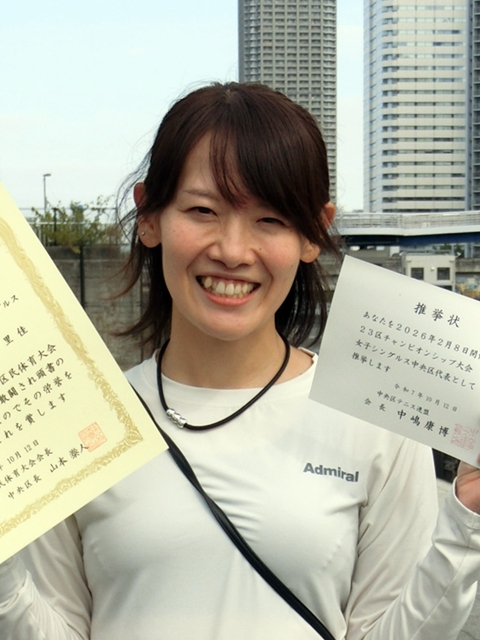 ルス
里佳
区民体育大会
敢闘され頭書の
のでその栄誉を
れを賞します
10月12日
民体育大会会長
中央区長 山本泰人
推挙状
あなたを2026年2月8日開
23区チャンピオンシップ大会
女子シングルス中央区代表として
推挙します
令和7年10月12日
中央区テニス連盟
会長 中嶋康博
Admiral